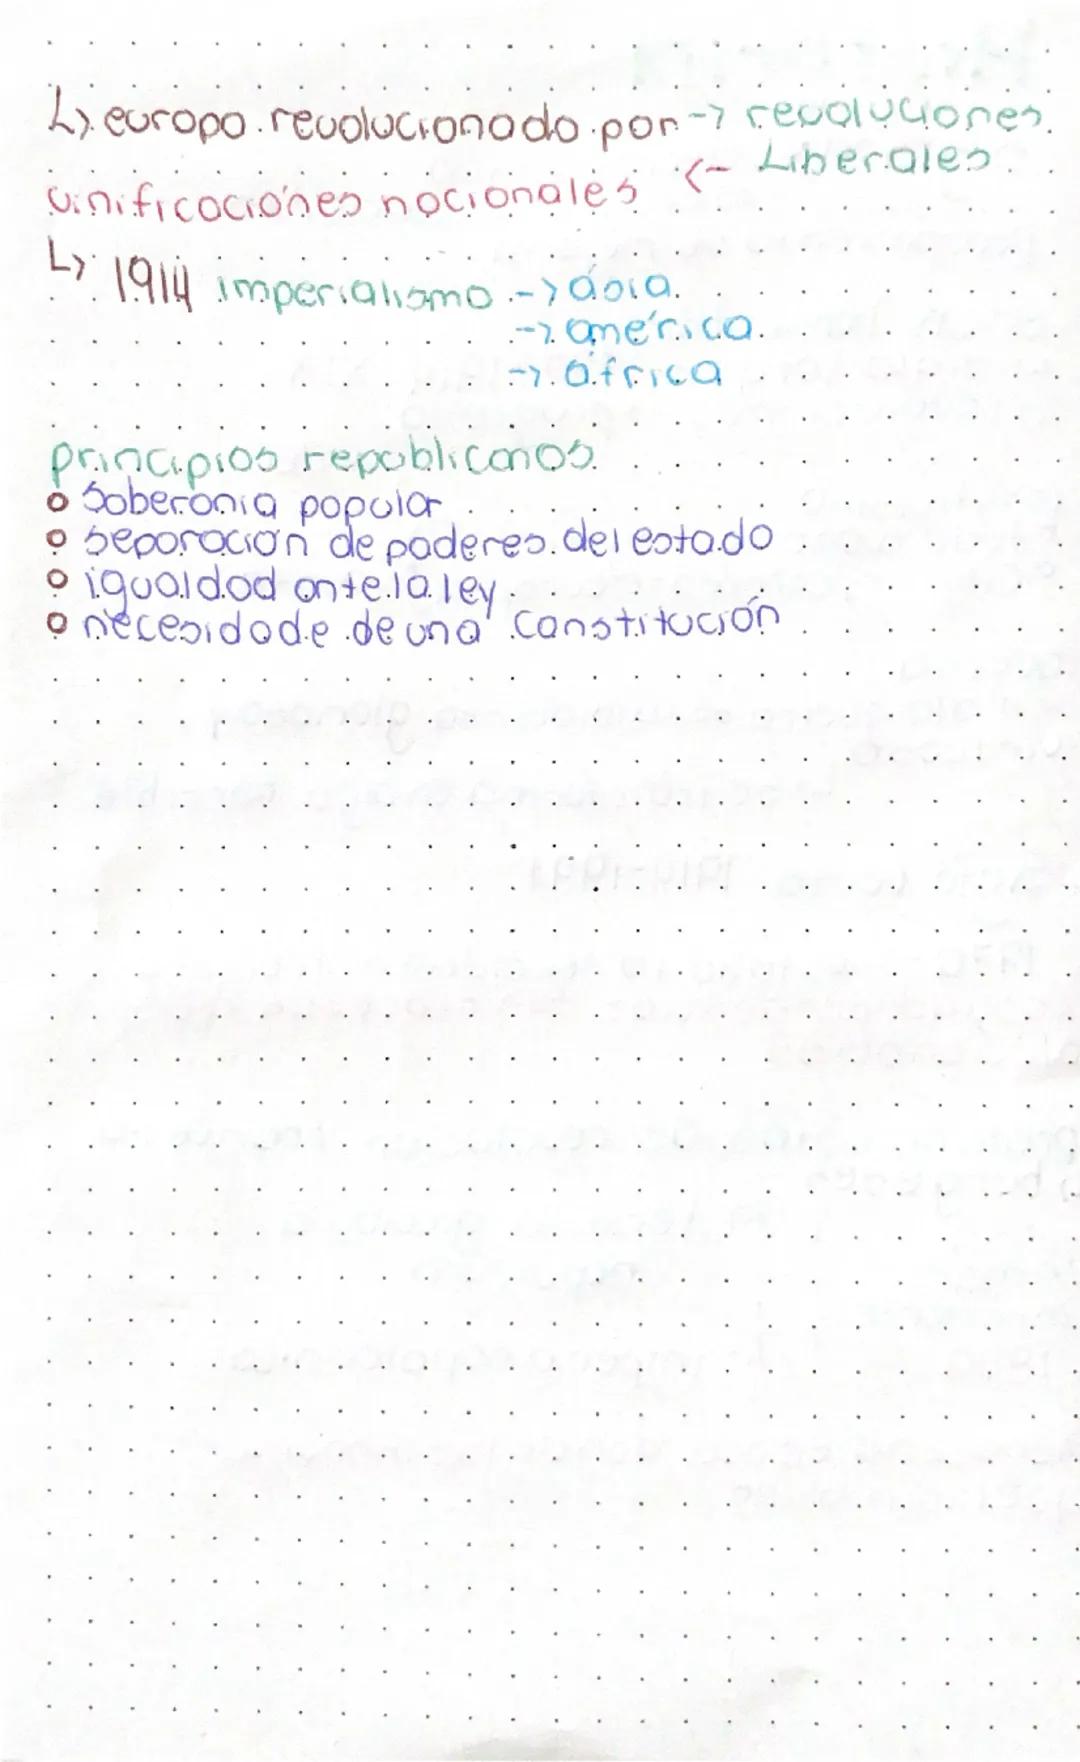 ↳ europa revolucionado por → revoluciones
← Liberales
unificaciónes nacionales
↳ 1914 imperialismo → ásia
→ américa
→ áfrica
principios republicanos
o Soberania popular
o separación de poderes del estado
o igualdad ante la ley
o necesidade de una constitución